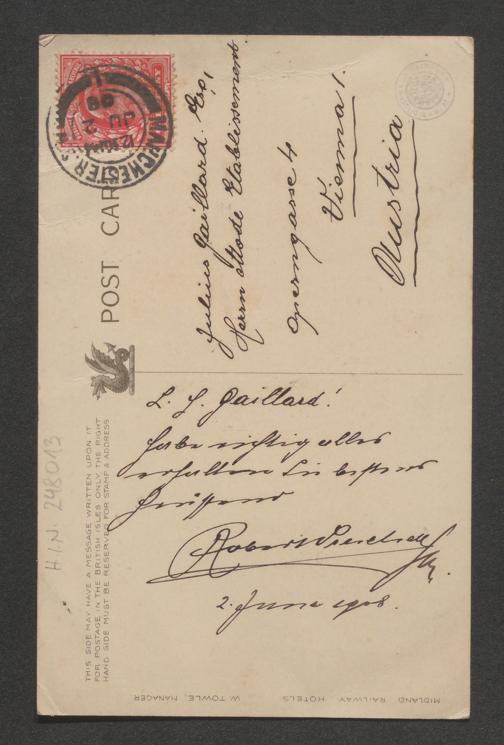 POST CARD
THIS SIDE MAY HAVE A MESSAGE WRITTEN UPON IT
FOR POSTAGE IN THE BRITISH ISLES ONLY. THE RIGHT
HAND SIDE MUST BE RESERVED FOR STAMP & ADDRESS
H.I.N. 248013
MANCHESTER. S.
JU 2
08
Julius Gaillard. Esq,
Herrn Mode Etablissement.
Operngasse 4
Vienna 1.
Austria
L. H. Gaillard!
habe richtig alles
erhalten Sie bestens
Grüssend
Robert
2. Juni 1908.
MIDLAND RAILWAY HOTELS
W. TOWLE, MANAGER